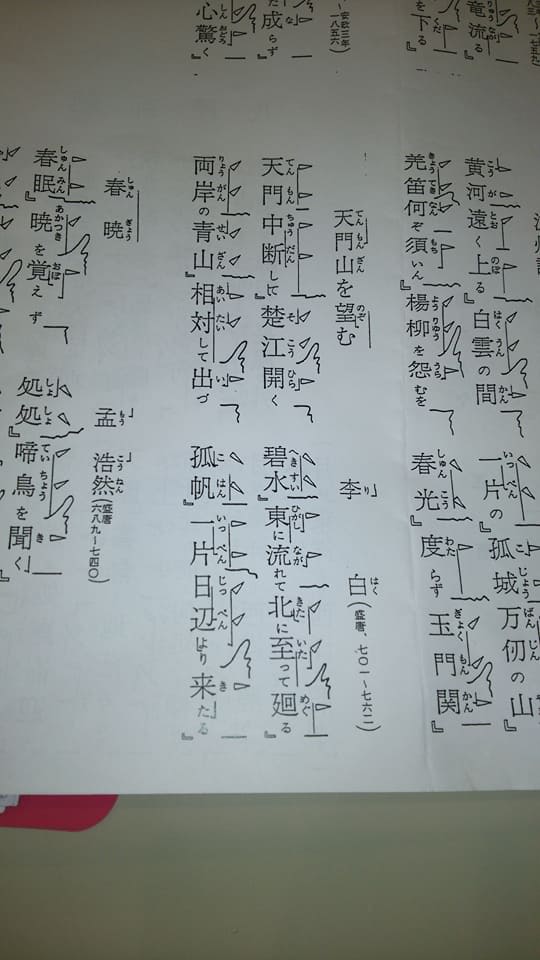 竜流る
を下る
安政三年
一八五六
た成らず
心驚く
黄河遠く上る白雲の間 一片の孤城万仞の山
羌笛何ぞ須いん楊柳を怨むを 春光度らず玉門関
天門山を望む
李 白(盛唐、七〇一〜七六二)
天門中断して楚江開く 碧水東に流れて北に至って廻る
両岸の青山相対して出づ 孤帆一片日辺より来たる
春暁
孟 浩然(盛唐 六八九〜七四〇)
春眠暁を覚えず 処処啼鳥を聞く